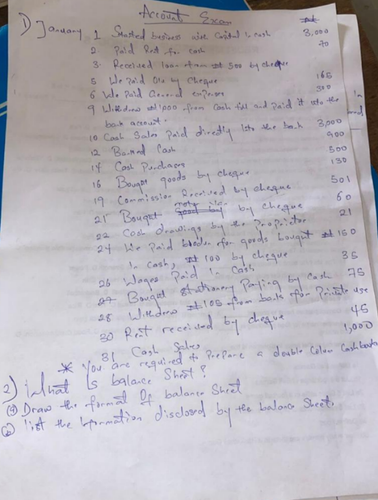 Account Exam
1) January 1 Started business with Capital in cash 3,000
2 Paid Rent for cash 70
3 Received loan from 500 by cheque
5 We Paid by cheque 165
6 We Paid General expenses 300
9 Withdrew 1,000 from Cash till and Paid it into the
bank account.
10 Cash Sales Paid directly into the bank 3,000
12 Banked Cash 900
14 Cash Purchases 500
16 Bought goods by cheque 130
19 Commission Received by cheque
21 Bought by cheque 501
22 Cash drawings by the Proprietor 60
24 We Paid for goods bought 150 21
in cash, 100 by cheque
26 Wages Paid in Cash 35
27 Bought Stationery Paying by Cash 75
28 Withdrew 105 from bank for Private use
30 Rent received by cheque 45
31 Cash Sales 1,000
* You are required to Prepare a double Colum Cashbook
2) What Is balance Sheet?
(a) Draw the format Of balance Sheet
(b) list the Information disclosed by the balance Sheet.